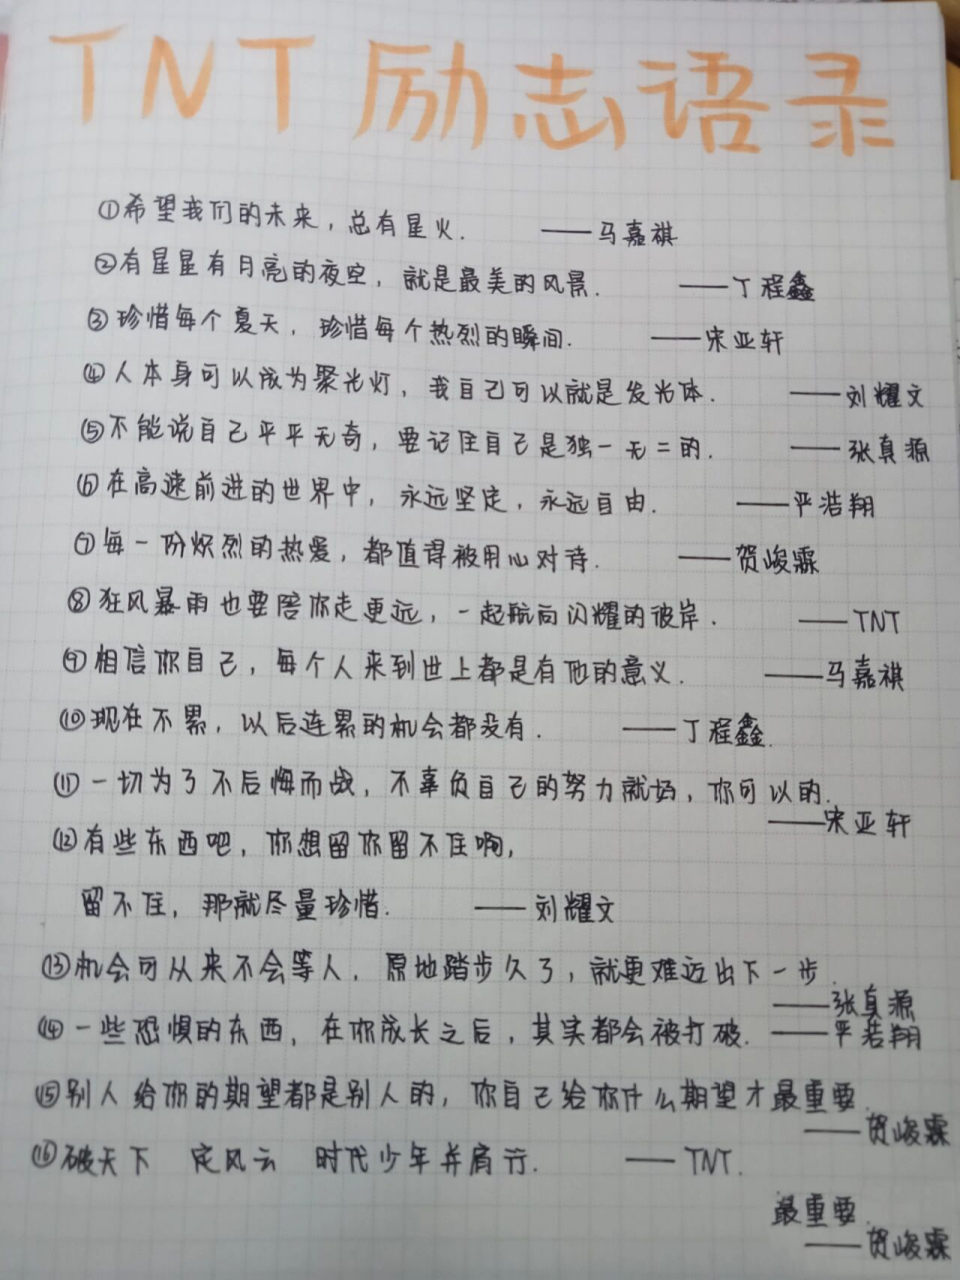 TNT 励志语录
①希望我们的未来，总有星火. ——马嘉祺
②有星星有月亮的夜空，就是最美的风景. ——丁程鑫
③珍惜每个夏天，珍惜每个热烈的瞬间. ——宋亚轩
④人本身可以成为聚光灯，我自己可以就是发光体. ——刘耀文
⑤不能说自己平平无奇，要记住自己是独一无二的. ——张真源
⑥在高速前进的世界中，永远坚定，永远自由. ——严浩翔
⑦每一份炽烈的热爱，都值得被用心对待. ——贺峻霖
⑧狂风暴雨也要陪你走更远，一起航向闪耀的彼岸. ——TNT
⑨相信你自己，每个人来到世上都是有他的意义. ——马嘉祺
⑩现在不累，以后连累的机会都没有. ——丁程鑫.
⑪一切为了不后悔而战，不辜负自己的努力就场，你可以的.
——宋亚轩
⑫有些东西吧，你想留你留不住啊，
留不住，那就尽量珍惜. ——刘耀文
⑬机会可从来不会等人，原地踏步久了，就更难迈出下一步.
——张真源
⑭一些恐惧的东西，在你成长之后，其实都会被打破. ——严浩翔
⑮别人给你的期望都是别人的，你自己给你什么期望才最重要.
——贺峻霖
⑯破天下 定风云 时代少年并肩行. ——TNT.
最重要.
——贺峻霖